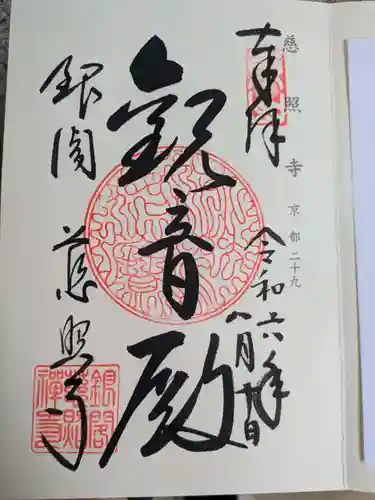 慈照寺 京都二十九
奉拝
令和六年八月十日
観音殿
銀閣 慈照寺
銀閣
慈照
禅寺